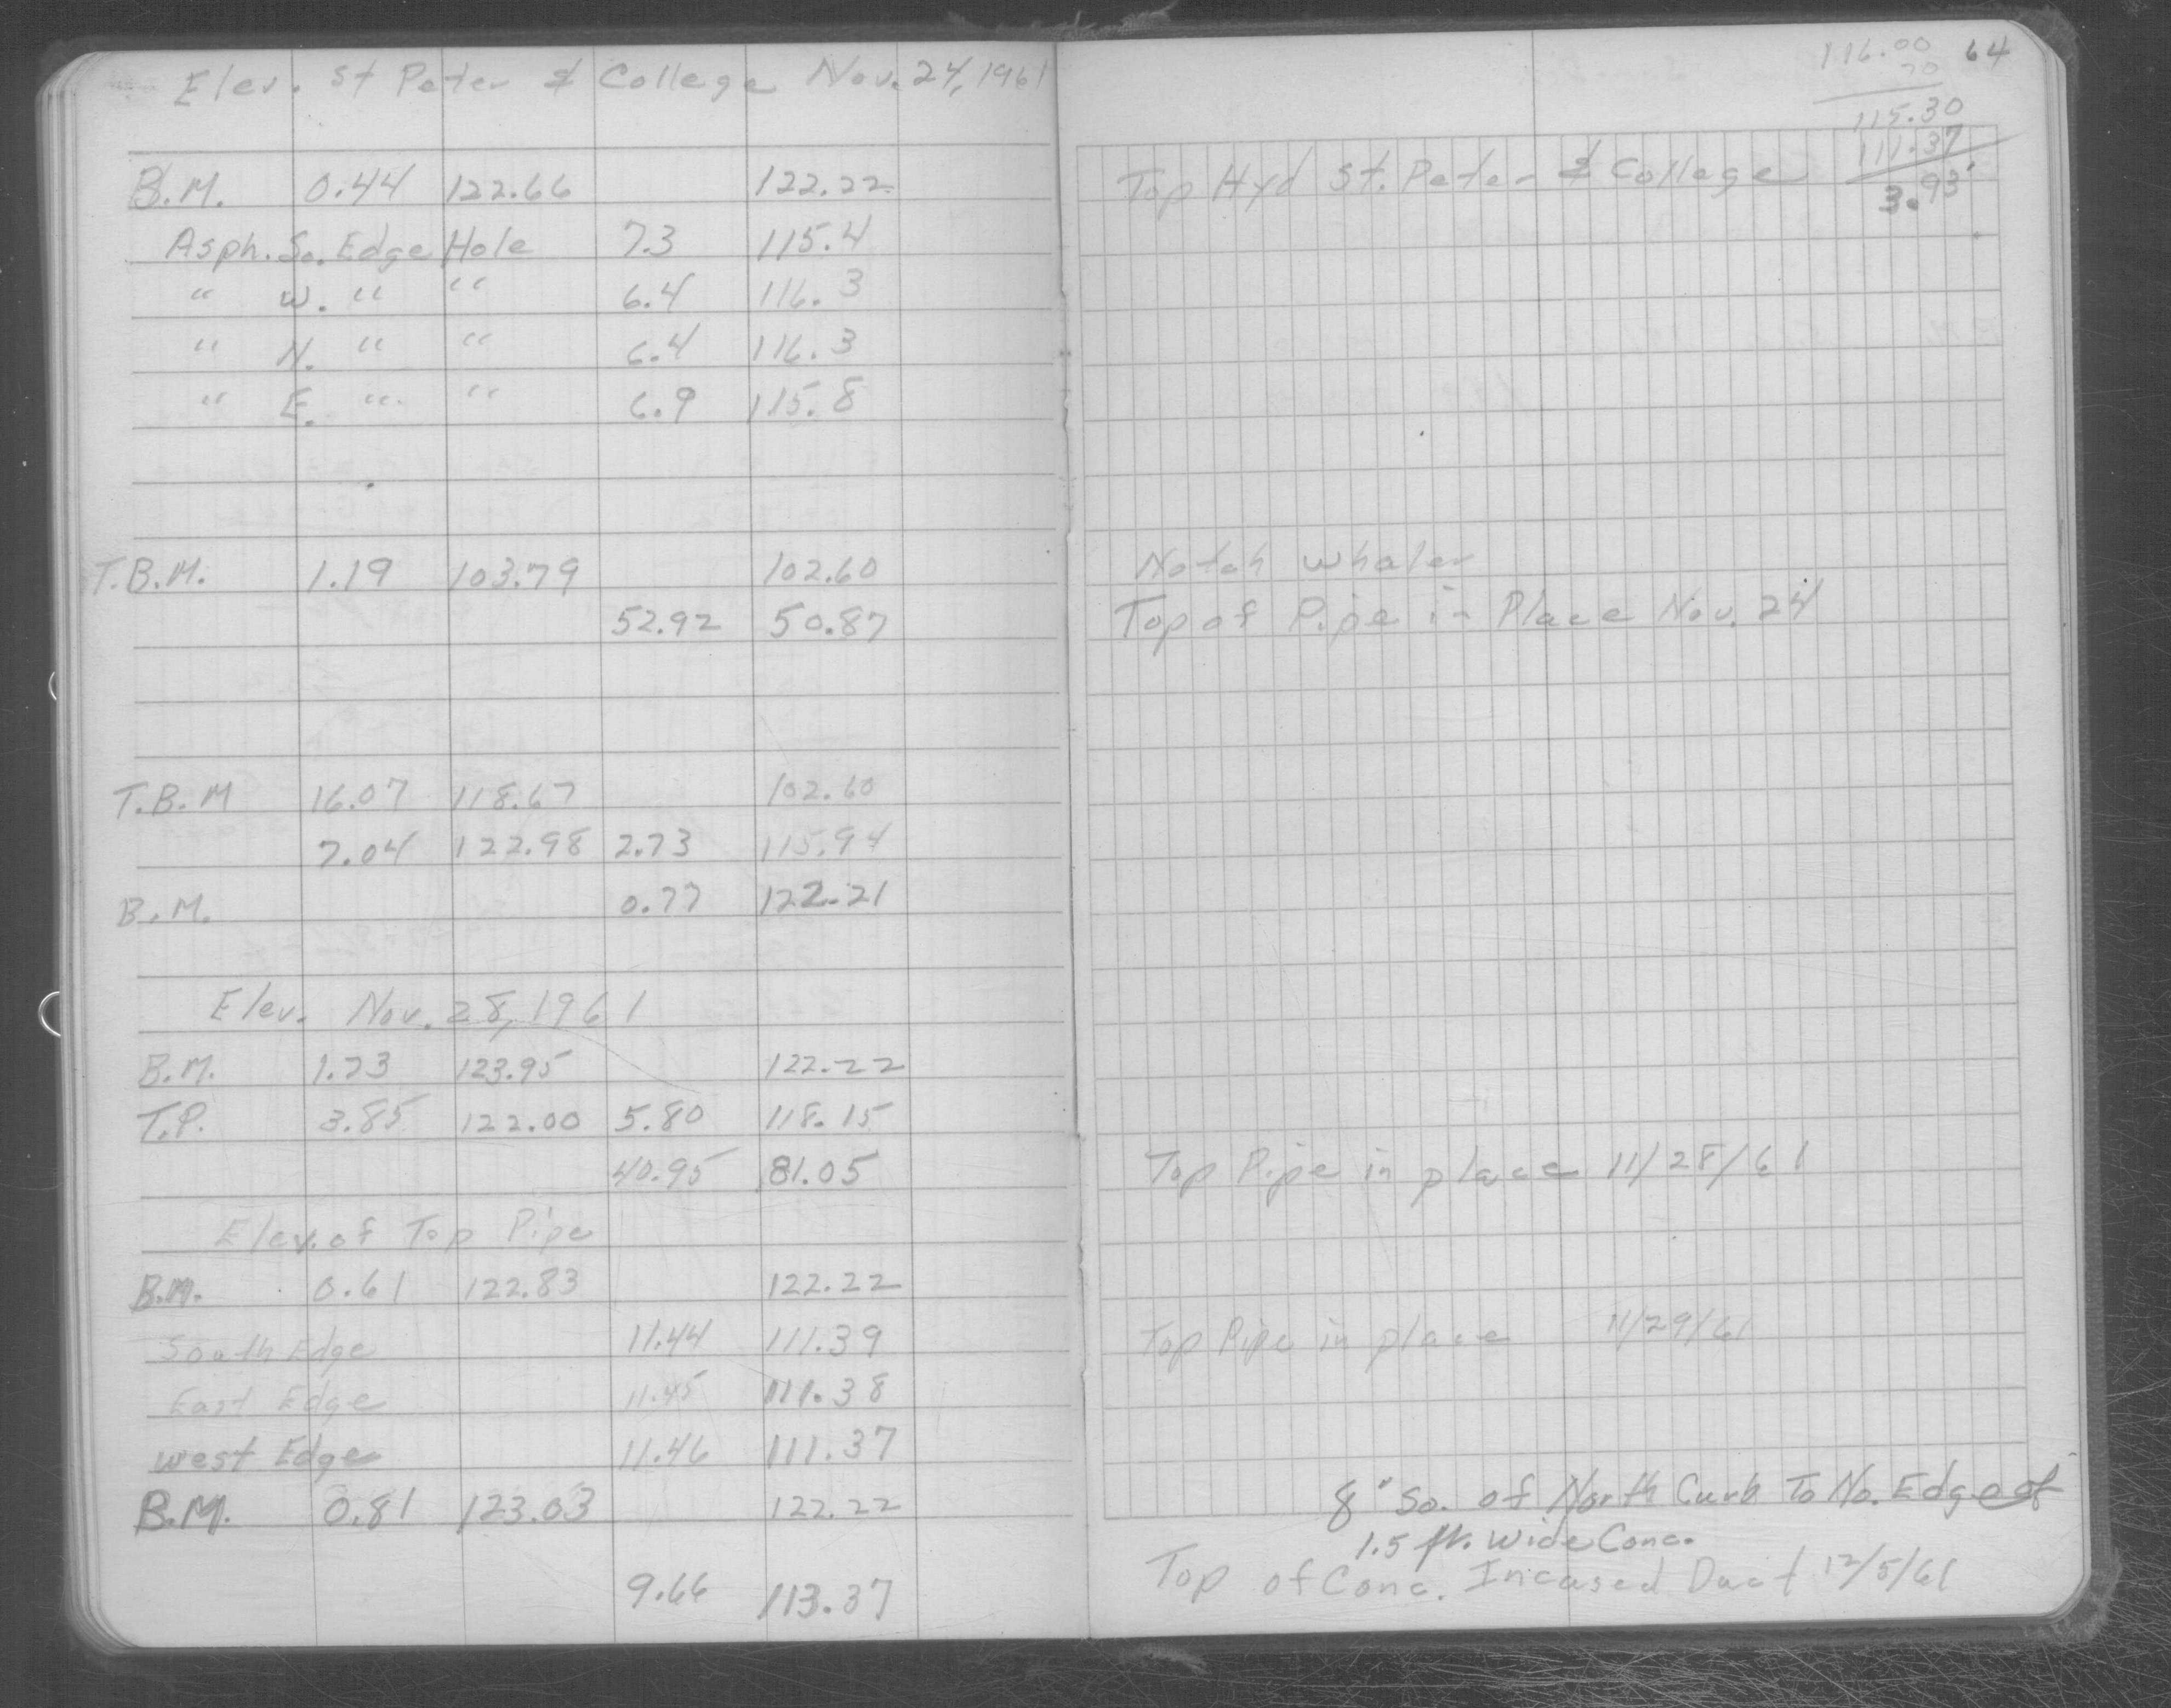 Elev. St Peter & College Nov. 24, 1961
B.M. 0.44 122.66 122.22
Asph. So. Edge Hole 7.3 115.4
" W. " " 6.4 116.3
" N. " " 6.4 116.3
" E. " " 6.9 115.8
T.B.M. 1.19 103.79 102.60
52.92 50.87
T.B.M 16.07 118.67 102.60
7.04 122.98 2.73 115.94
B.M. 0.77 122.21
Elev. Nov. 28, 1961
B.M. 1.73 123.95 122.22
T.P. 3.85 122.00 5.80 118.15
40.95 81.05
Elev. of Top Pipe
B.M. 0.61 122.83 122.22
South Edge 11.44 111.39
East Edge 11.45 111.38
West Edge 11.46 111.37
B.M. 0.81 123.03 122.22
9.66 113.37
116.00 64
70
115.30
111.37
3.93'
Top Hyd St. Peter & College
Notch Whaler
Top of Pipe in Place Nov. 24
Top Pipe in place 11/28/61
Top Pipe in place 11/29/61
8" So. of North Curb To No. Edge of
1.5 ft. Wide Conc.
Top of Conc. Incased Duct 12/5/61